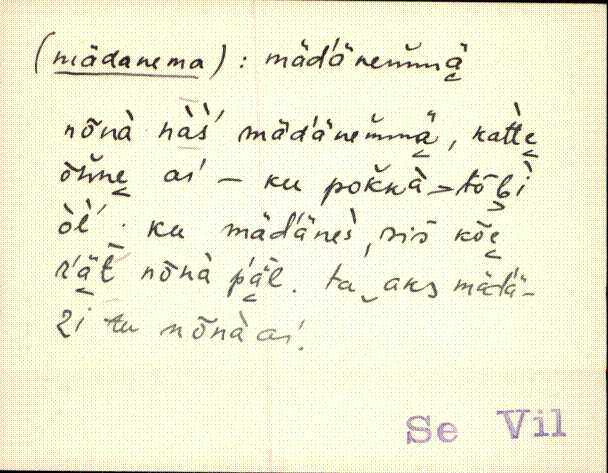 (mädanema) : mäd'änem̆mä̬
nõnà hàś mäd'änem̆mä̬, katte̬
õn̆ne̬ aś – ku pok̆kà > tõb̬ì
òĺ . ku mäd'änes̀, siś kõe̬
r'ä̬t̀ nõnà p'ä̬l. ta‿aks mäd'ä-
zi tu nõnà aś.
Se Vil